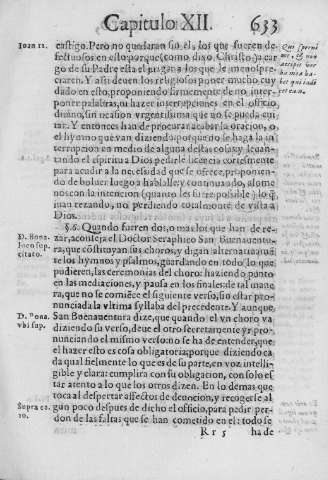 Capitulo XII. 633
Ioan 12.
castigo. Pero no quedaran sin èl, los que fueren de-
fectuosos en esto porque (como dixo Christo) a car
go de su Padre esta el juzgar a los que le menospre-
ciaren. Y assi deuen los religiosos poner mucho cuy
dado en esto, proponiendo firmemente de no inter-
poner palabras, ni hazer interrupciones en el officio
diuino, sin ocasion vrgentissima que no se pueda eui-
tar. Y entonces han de procurar acabar la oracion, o
el hymno que van diziendo, porque no se haga in-
terrupcion en medio de alguna destas cosas, y leuan-
tando el espiritu a Dios pedirle licencia cortesmente
para acudir a la necessidad que se ofrece, proponien-
do de boluer luego a hablalle y continuando, alome
nos con la intencion (quanto les fuere possible) lo q̃
yuan rezando, no perdiendo totalmente de vista a
Dios.
Qui sperni
me, & non
accipit ver
ba mea ha-
bet qui iudi
cet eum.
§. 6. Quando fueren dos, o mas los que han de re-
zar, aconseja el Doctor Seraphico San Buenauentu-
ra, que cõstituyan sus choros, y digan alternatiuamẽ
te los hymnos y psalmos, guardando en todo lo que
pudieren, las ceremonias del choro: haziendo punto
en las mediaciones, y pausa en los finales: de tal mane
ra, que no se comiẽce el siguiente verso, sin estar pro-
nunciada la vltima syllaba del precedente. Y aunque
San Buenauentura dize, que quando el vn choro va
diziendo su verso, deue el otro secretamente yr pro-
nunciando el mismo verso: no se ha de entender, que
el hazer esto es cosa obligatoria; porque diziendo ca
da qual fielmente lo que es de su parte, en voz intelli-
gible y clara: cumplira con su obligacion, con solo es
tar atento a lo que los otros dizen. En lo demas que
toca al despertar affectos de deuocion, y recogerse al
gun poco despues de dicho el officio, para pedir per-
don de las faltas que se han cometido en el: todo se
D. Bona.
loco sup.
citato.
D. Bona.
vbi sup.
Supra ca.
10.
Rr 5 ha de